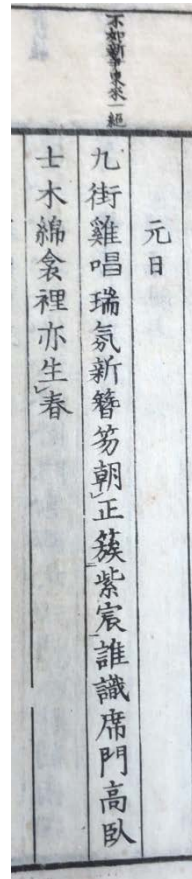 不如勅争東来一絶
元日
九街雞唱瑞氛新簪笏朝正簇紫宸誰識席門高臥
士木綿衾裡亦生春